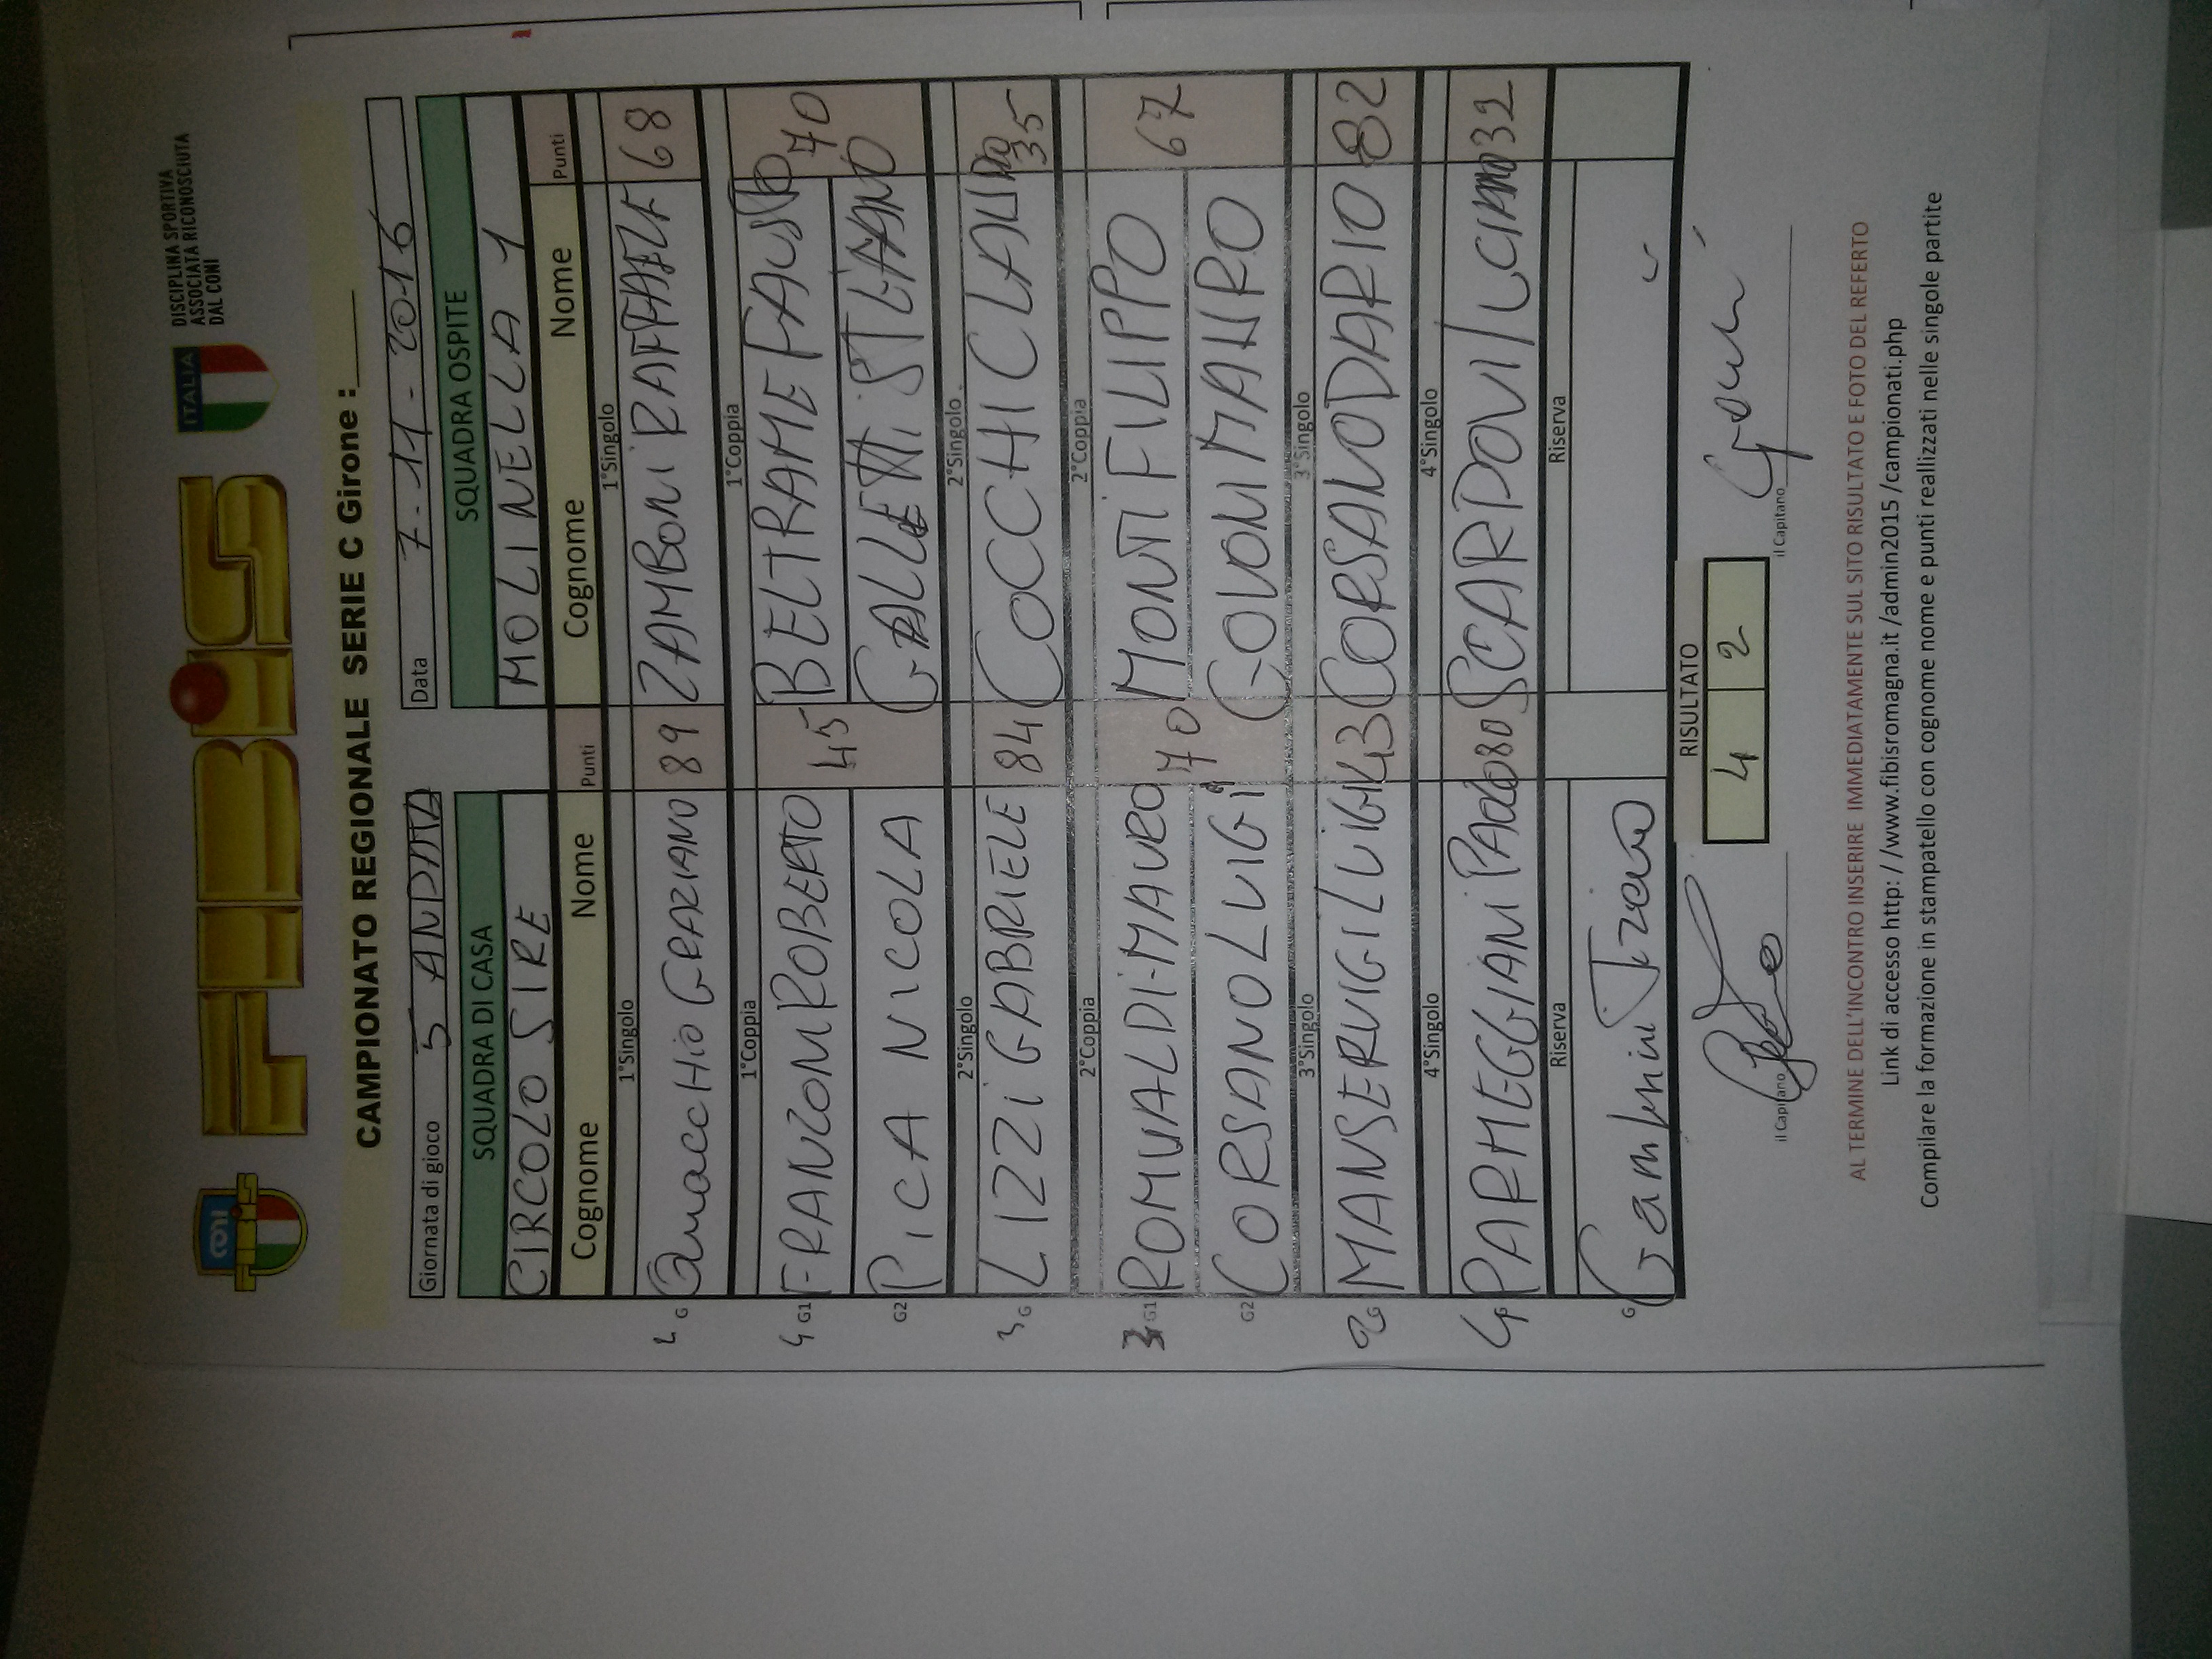 CONI
FIBIS
FIBiS
ITALIA
DISCIPLINA SPORTIVA
ASSOCIATA RICONOSCIUTA
DAL CONI
CAMPIONATO REGIONALE SERIE C Girone :
Giornata di gioco 5 ANDATA Data 7-11-2016
SQUADRA DI CASA SQUADRA OSPITE
CIRCOLO SIRE MOLINELLA 1
Cognome Nome Punti Cognome Nome Punti
1°Singolo 1°Singolo
G GRAZIANO 89 ZAMBONI RAFFAELE 68
1°Coppia 1°Coppia
4 G1 FRANZONI ROBERTO 45 BELTRAME FAUSTO 70
G2 PICA NICOLA GALLETTI STEFANO
2°Singolo 2°Singolo
3 G LIZZI GABRIELE 84 COCCHI CLAUDIO 35
2°Coppia 2°Coppia
3 G1 ROMUALDI MAURO 70 MONTI FILIPPO 67
G2 CORSANO LUIGI GOLONI MAURO
3°Singolo 3°Singolo
2 G MANSERVIGI LUIGI 43 CORSANO DARIO 82
4°Singolo 4°Singolo
4 G PARMEGGIANI PAOLO 80 SCARPOVI LUCIANO 32
Riserva Riserva
G Gamberini Tiziano
RISULTATO
il Capitano 4 2 il Capitano
AL TERMINE DELL'INCONTRO INSERIRE IMMEDIATAMENTE SUL SITO RISULTATO E FOTO DEL REFERTO
Link di accesso http: / /www.fibisromagna.it /admin2015 /campionati.php
Compilare la formazione in stampatello con cognome nome e punti reallizzati nelle singole partite